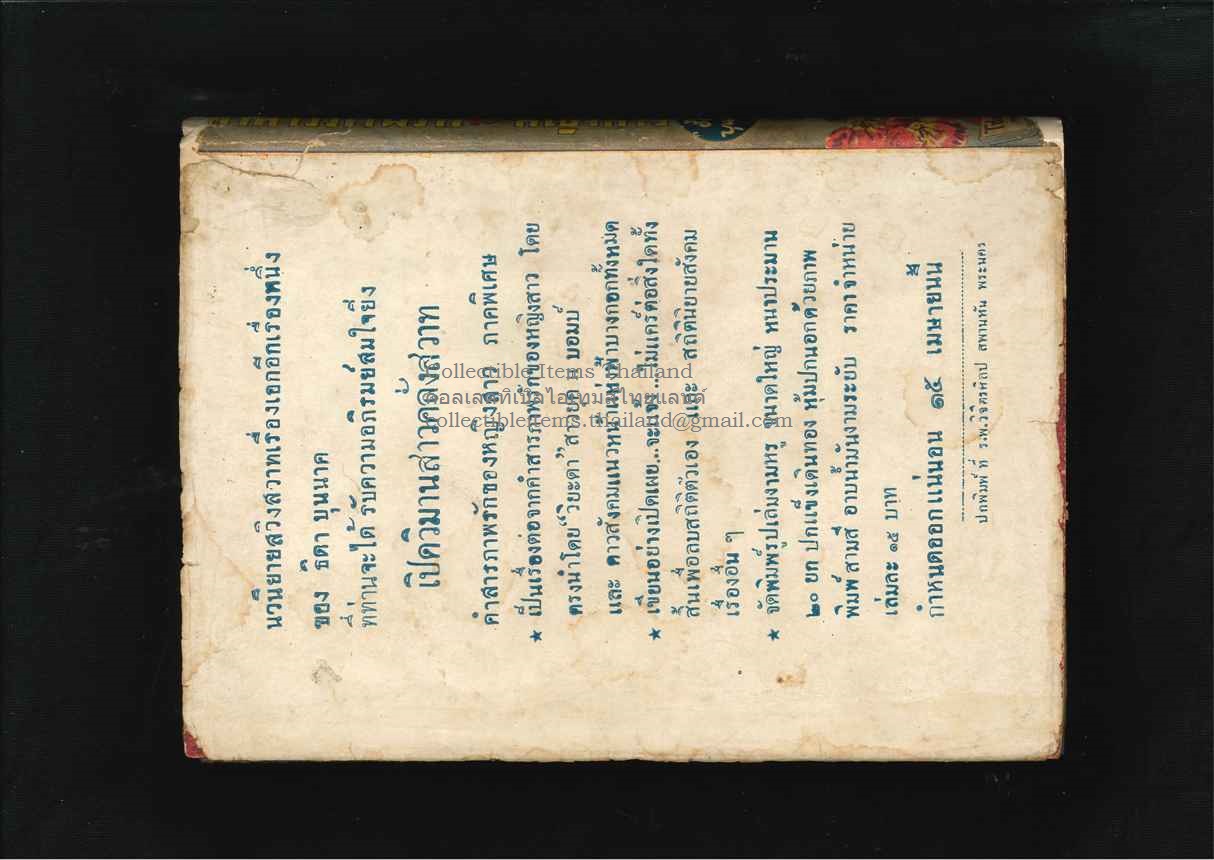 นวนิยายสวิงสวาทเรื่องเอกอีกเรื่องหนึ่ง
ของ ธิดา บุนนาค
ที่ท่านจะได้รับความอภิรมย์สมใจยิ่ง
เปิดวิมานสาวคลั่งสวาท
คำสารภาพรักของหญิงสาว ภาคพิเศษ
★ เป็นเรื่องต่อจากคำสารภาพรักของหญิงสาว โดย
ตรงนำโดย "วิยะดา" สาวยูคิ บอมบ์
และ ดาวสังคมแนวหน้าในฟากฟ้าบางกอกทั้งหมด
★ เขียนอย่างเปิดเผย..จะแจ้ง...ไม่แคร์ต่อสิ่งใดทั้ง
สิ้นเพื่อลบสถิติตัวเอง และ สถิตินิยายสังคม
เรื่องอื่น ๆ
★ จัดพิมพ์รูปเล่มงามหรู ขนาดใหญ่ หนาประมาณ
๒๐ ยก ปกแข็งเดินทอง หุ้มปกนอกด้วยภาพ
พิมพ์สามสี อาบน้ำมันงามระยับ ราคาจำหน่าย
เล่มละ ๑๕ บาท
กำหนดออกแน่นอน ๑๕ เมษายนนี้
ปกพิมพ์ที่ ร.พ.วิจิตรศิลป สพานหัน พระนคร
Collectible Items Thailand
คอลเลคทิเบิลไอเทมส์ไทยแลนด์
collectibleitems.thailand@gmail.com